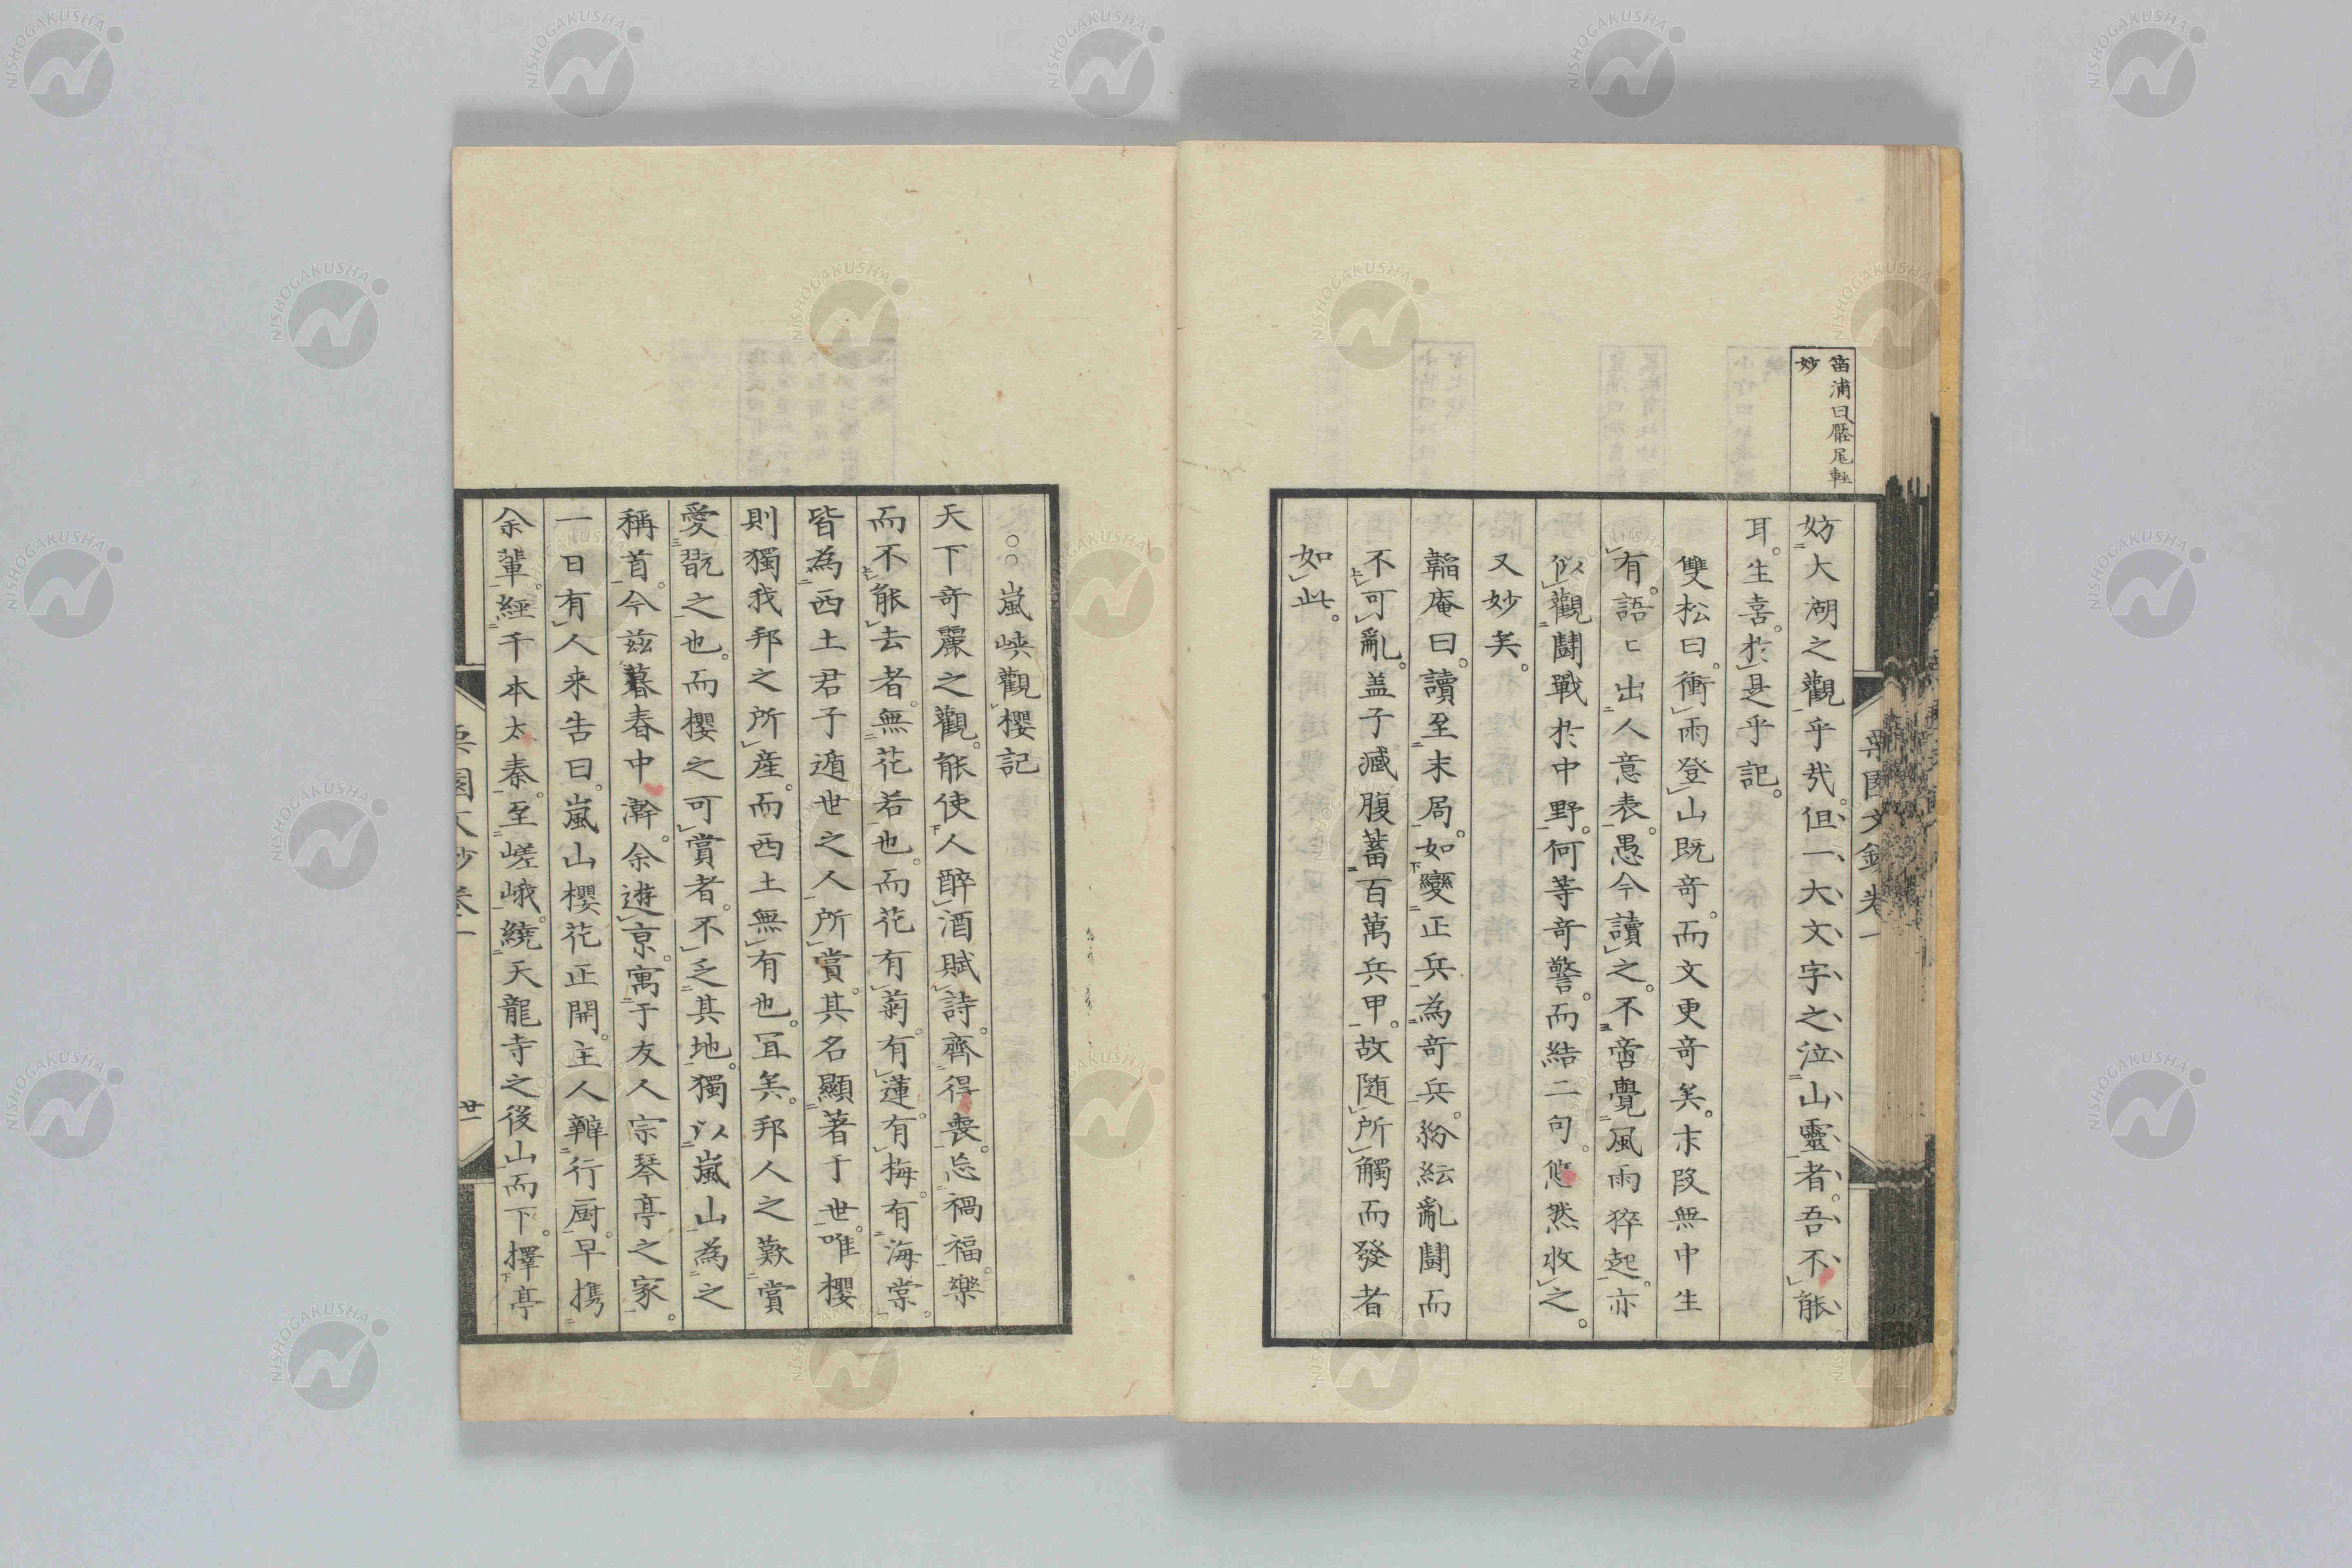 笛浦曰壓尾輕
妙
妨大湖之觀乎哉。但一大文字之泣山靈者。吾不能
耳。生喜。於是乎記。
雙松曰。衝雨登山既奇。而文更奇矣。末段無中生
有。語々出人意表。愚今讀之。不啻覺風雨猝起。亦
似觀鬪戰於中野。何等奇警。而結二句。悠然收之。
又妙矣。
韜庵曰。讀至末局。如變正兵為奇兵。紛紜亂鬪而
不可亂。盖子臧腹蓄百萬兵甲。故随所觸而發者
如此。
栗園文鈔卷一
○○嵐峽觀櫻記
天下奇麗之觀。能使人醉酒賦詩。齊得喪。忘禍福。樂
而不能去者。無花若也。而花有菊。有蓮。有梅。有海棠。
皆為西土君子遁世之人所賞。其名顯著于世。唯櫻
則獨我邦之所產。而西土無有也。冝矣。邦人之歎賞
愛翫之也。而櫻之可賞者。不乏其地。獨以嵐山為之
稱首。今茲暮春中澣。余遊京。寓于友人宗琴亭之家。
一日有人来告曰。嵐山櫻花正開。主人辨行厨。早携
余輩。經千本太秦。至嵯峨。繞天龍寺之後山而下。擇亭
栗園文鈔卷一
廿一
NISHOGAKUSHA